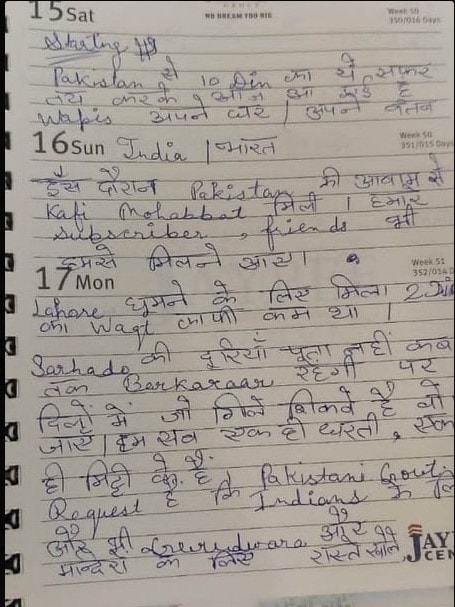 15 Sat
NO DREAM TOO BIG
Week 50
350/016 Days
Starting
Pakistan से 10 Din का ये सफर
तय करके आज आ गई है
Wapis अपने घर | अपने वतन
16 Sun India | भारत
Week 50
351/015 Days
इस दौरान Pakistan की आवाम से
Kafi Mohabbat मिली | हमारे
subscriber, friends भी
हमसे मिलने आए |
17 Mon
Week 51
352/014 D
Lahore घूमने के लिए मिला 2 Din
का Waqt काफी कम था |
Sarhado की दूरियाँ पता नहीं कब
तक Barkaraar रहेगी पर
दिलों में जो गिले शिकवे है वो
जाए | हम सब एक ही धरती, एक
ही मिट्टी के है.
Pakistani Govt
Request है कि Indians के लि
और भी Gurudwara और
मन्दिरो के लिए रास्ते खोले
JAY
CEN